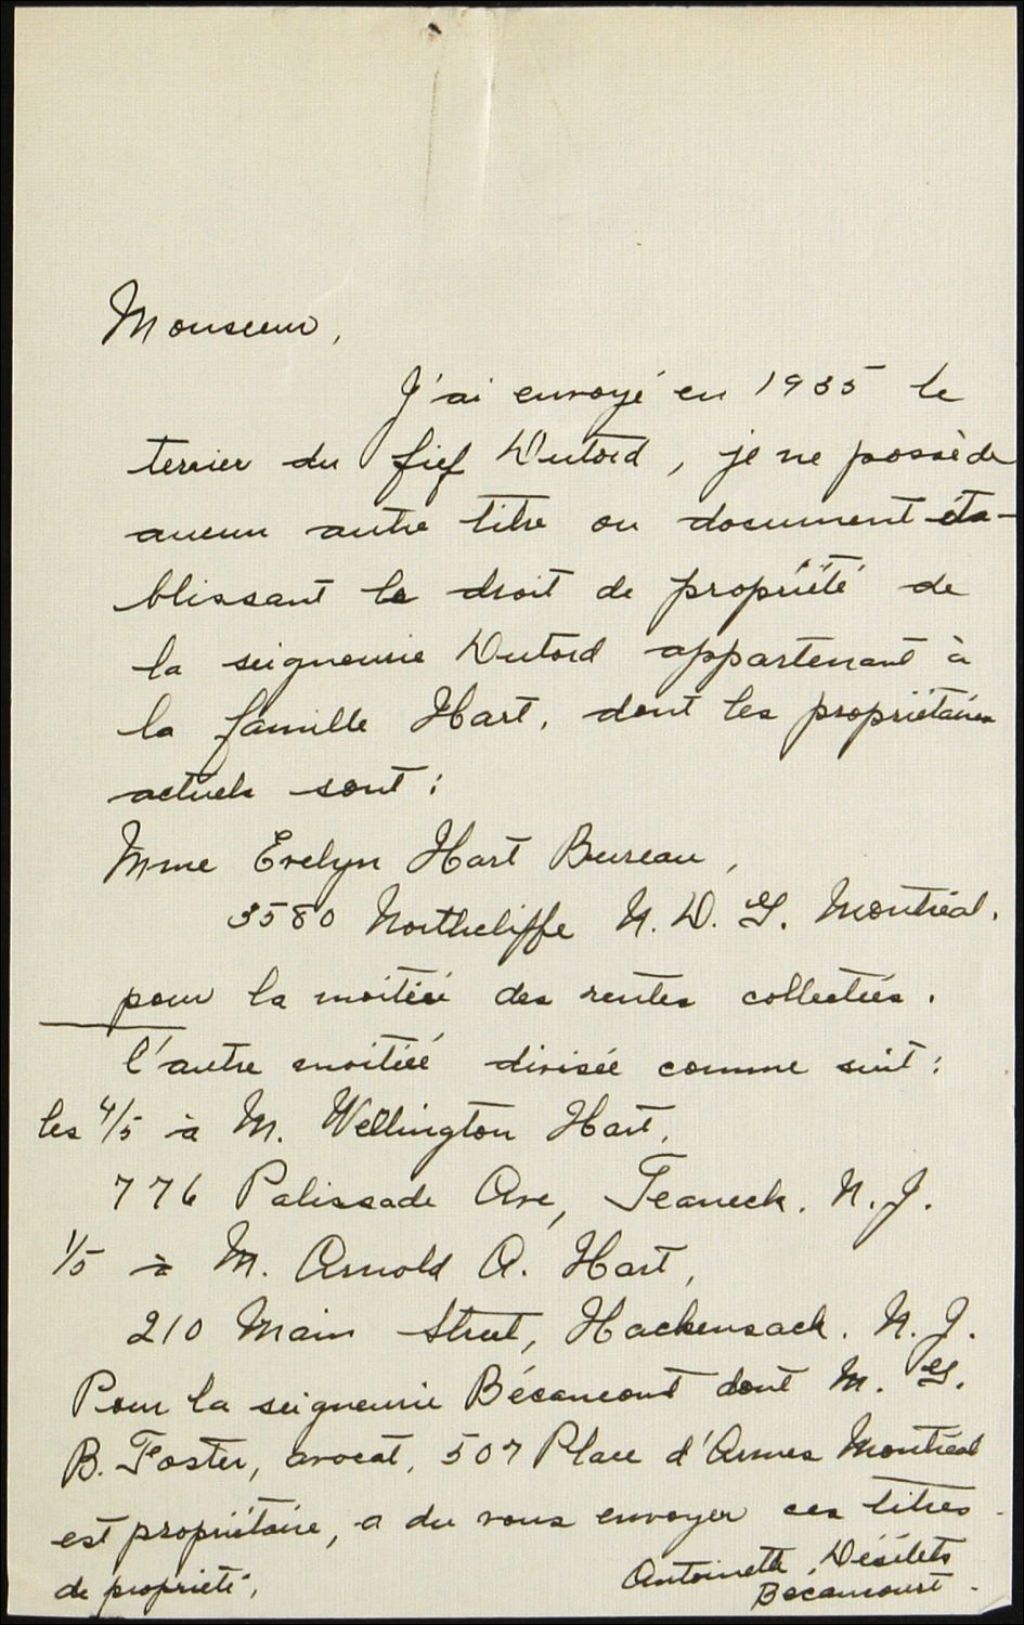 Monsieur,
J'ai envoyé en 1935 le
terrier du fief Dutord, je ne possède
aucun autre titre ou document éta-
blissant le droit de propriété de
la seigneurie Dutord appartenant à
la famille Hart, dont les propriétaires
actuels sont :
Mme Evelyn Hart Bureau,
3580 Northcliffe N. D. G. Montréal.
pour la moitiée des rentes collectées.
l'autre moitiée divisée comme suit :
les 4/5 à M. Wellington Hart,
776 Palissade Ave, Teaneck. N. J.
1/5 à M. Arnold A. Hart,
210 Main Street, Hackensack. N. J.
Pour la seigneurie Bécancourt dont M. G.
B. Foster, avocat, 507 Place d'Armes Montréal
est propriétaire, a du vous envoyer ses titres
de propriété.
Antoinette Désilets
Becancourt.